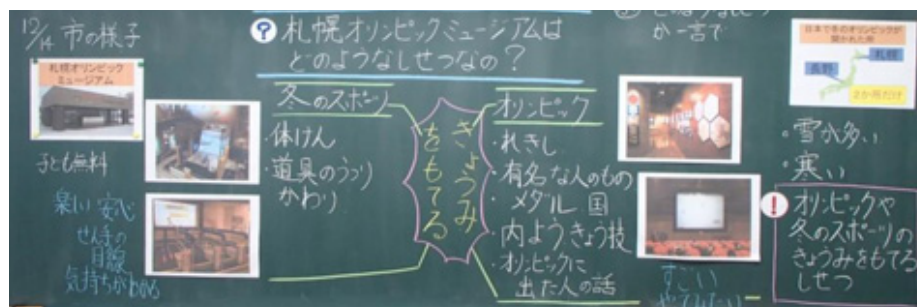 12/14 市の様子
札幌オリンピック
ミュージアム
子ども無料
楽しい 安心
せん手の
目線
気持ちがわかる
?
札幌オリンピックミュージアムは
どのようなしせつなの?
冬のスポーツ
・体けん
・道具のうつり
かわり
きょうみ
をもてる
オリンピック
・れきし
・有名な人のもの
・メダル 国
・内よう きょう技
・オリンピックに
出た人の話
か一言で
すごい
やってみたい
日本で冬のオリンピックが
開かれた所
札幌
長野
2か所だけ
・雪が多い
・寒い
!
オリンピックや
冬のスポーツの
きょうみをもてる
しせつ